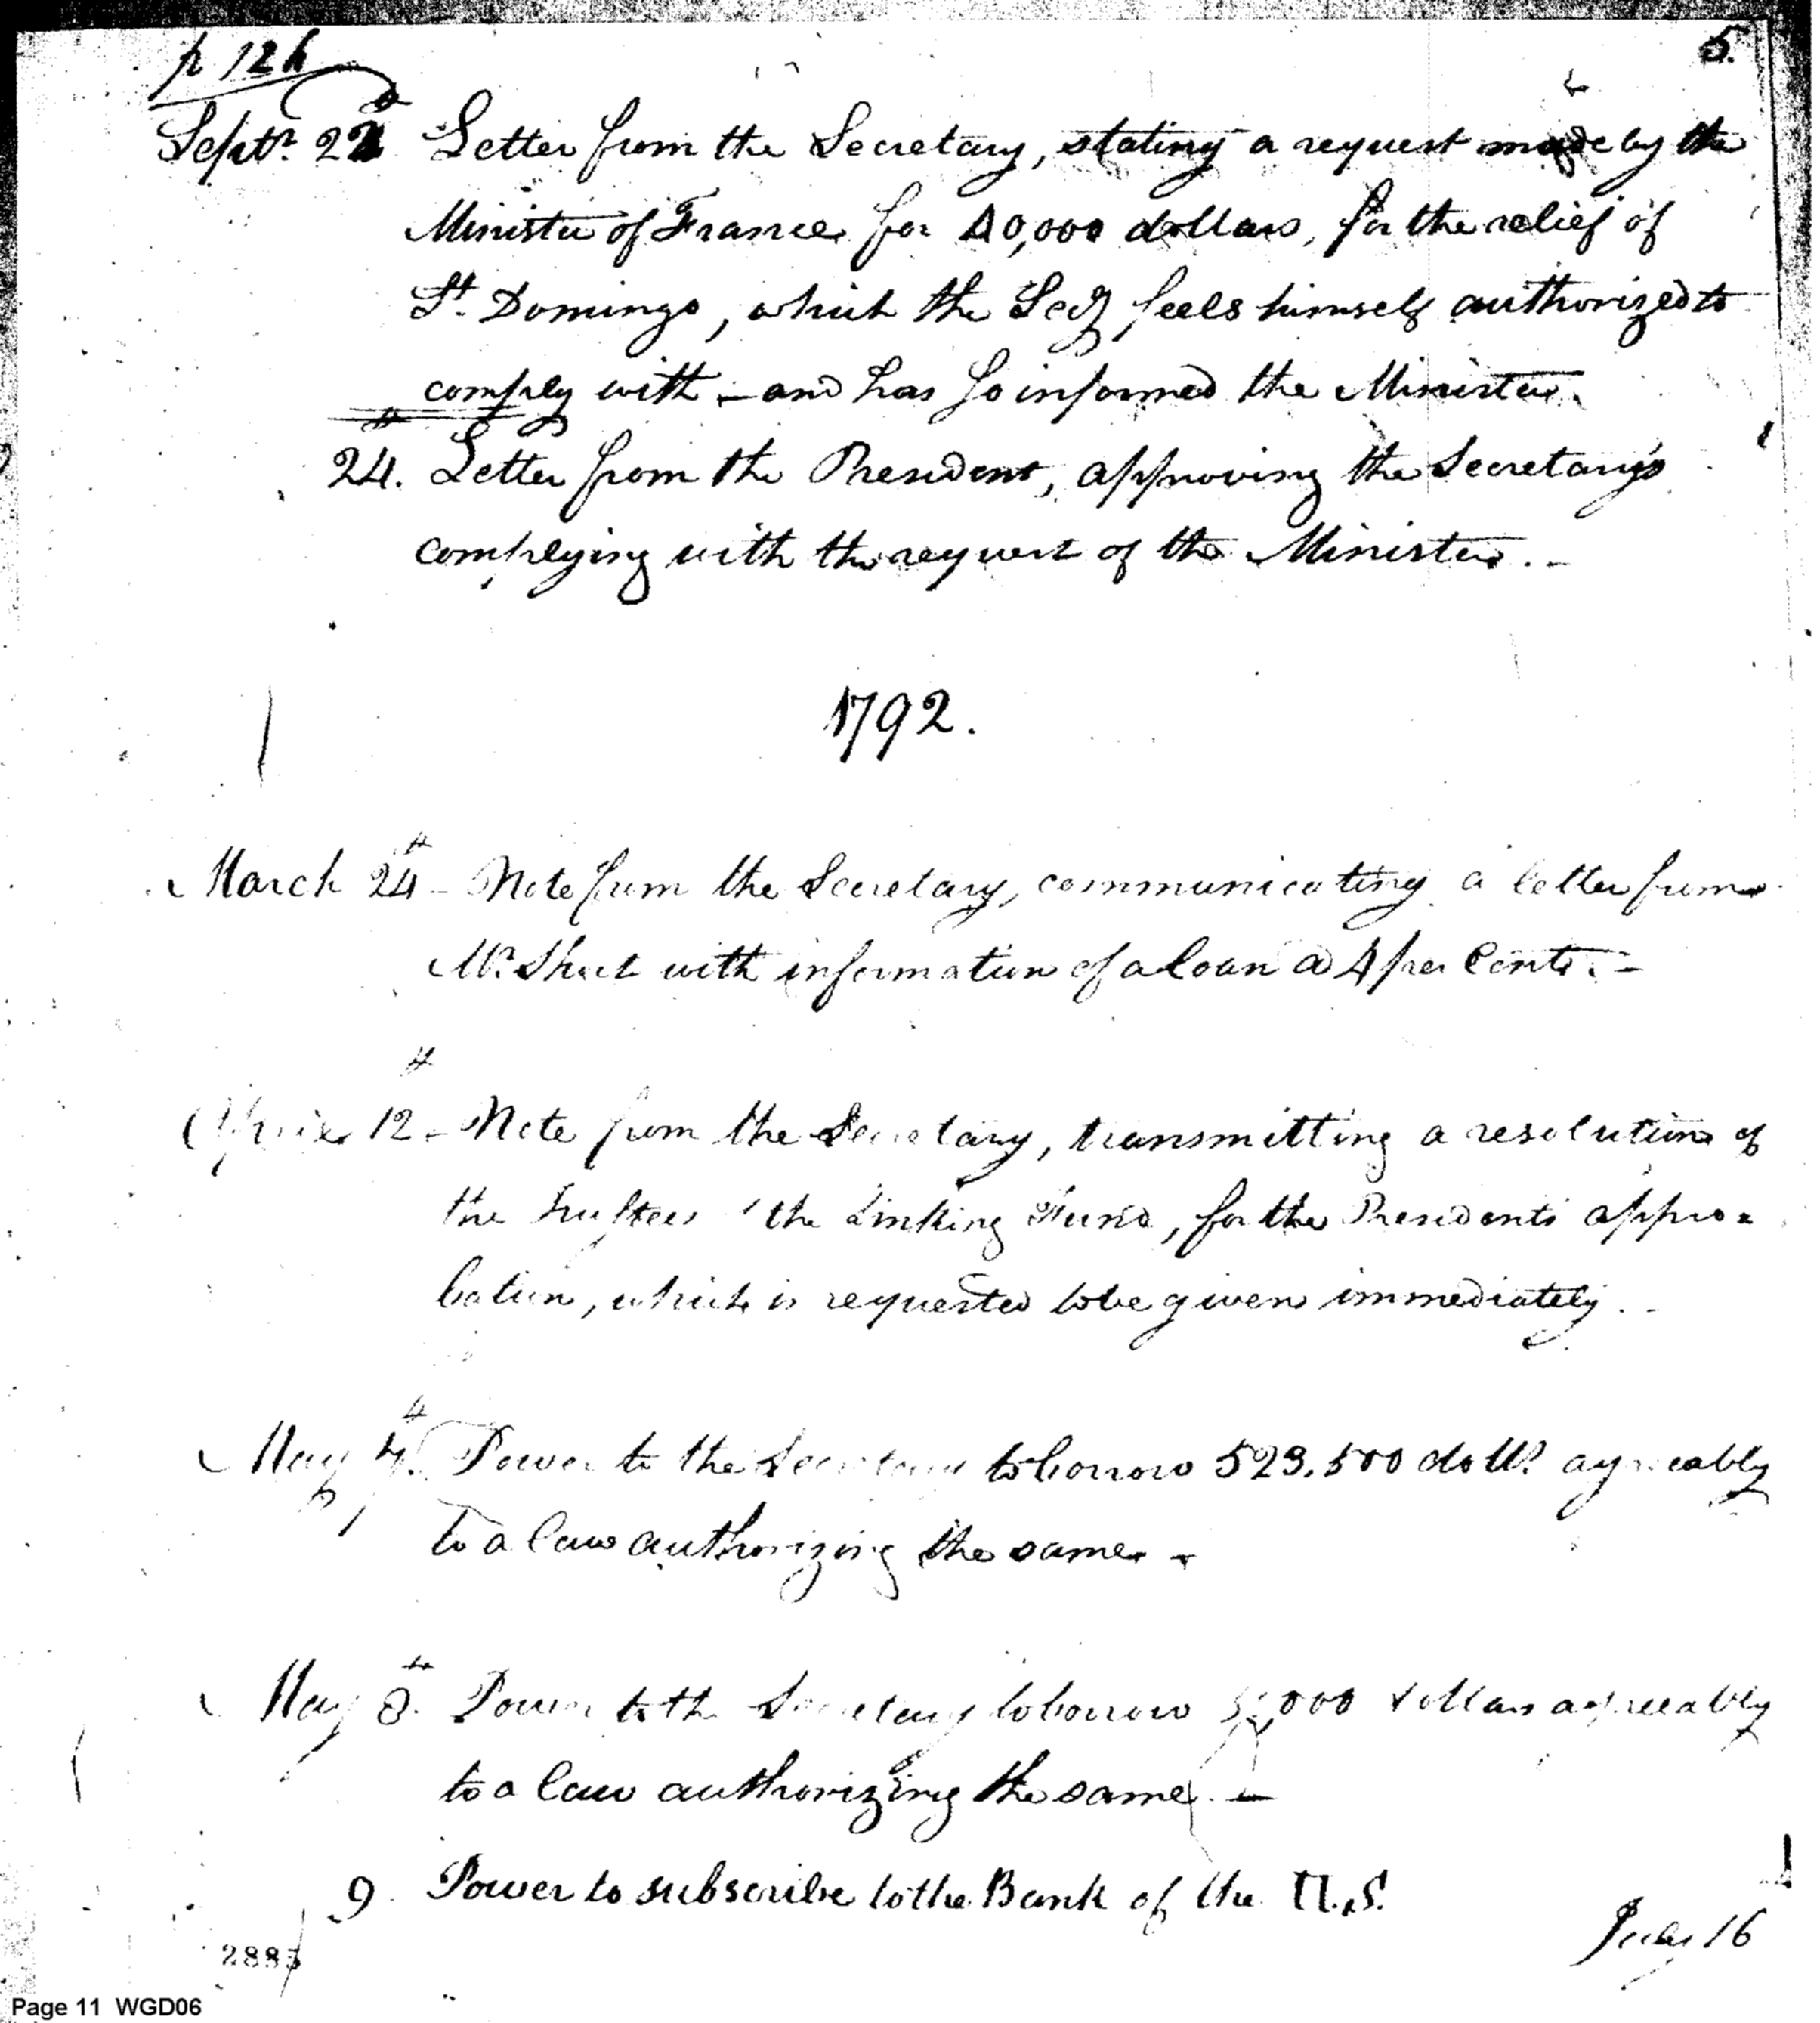 p 126
5.
Septr. 22 Letter from the Secretary, stating a request made by the
Minister of France for 40,000 dollars, for the relief of
St. Domingo, which the Secy feels himself authorized to
comply with – and has so informed the Minister.
24. Letter from the President, approving the Secretary's
complying with the request of the Minister. –
1792.
March 24 – Note from the Secretary, communicating a letter from
Mr. Short with information of a Loan @ 4 per Cent. –
April 12 – Note from the Secretary, transmitting a resolution of
the trustees the Sinking Fund, for the Presidents appro=
bation, which is requested to be given immediately. –
May 7. Power to the Secretary to borrow 523.500 dolls. agreeably
to a law authorizing the same –
May 8. Power to the Secretary to borrow dollars agreeably
to a law authorizing the same. –
9. Power to subscribe to the Bank of the U.S.
July 16
2885
Page 11 WGD06